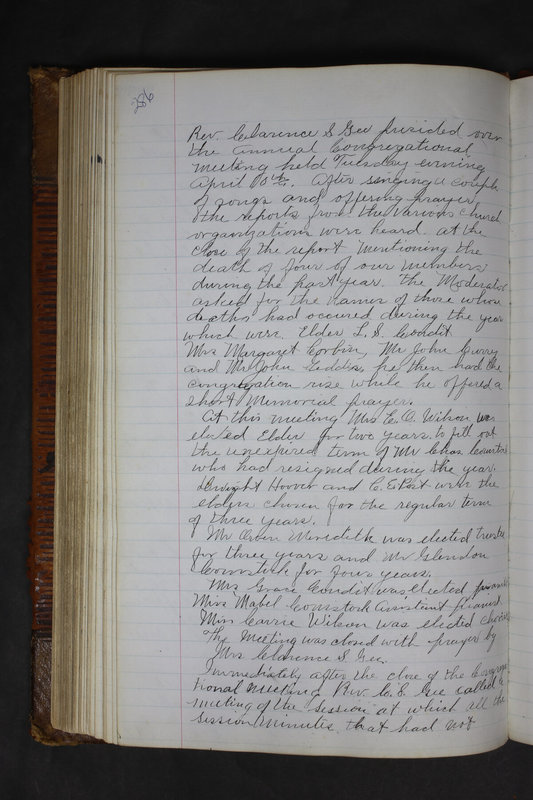 286
Rev. Clarence S Gee presided over
the annual Congregational
meeting held Tuesday evening
April 10th. After singing a couple
of songs and offering prayer
the reports from the various church
organizations were heard. at the
close of the report mentioning the
death of four of our members
during the past year. the Moderator
asked for the names of those whose
deaths had occured during the year
which were. Elder L. S. Condit
Mrs Margaret Corbin, Mr John
and Mr John Geddis, he then had the
congregation rise while he offered a
short Memorial prayer.
At this meeting Mrs E. O. Wilson was
elected Elder for two years. to fill out
the unexpired term of Mr Chas Comstock
who had resigned during the year.
Dwight Hoover and C. E Post were the
elders chosen for the regular term
of three years.
Mr Orvin Meredith was elected trustee
for three years and Mr Glendon
Comstock for four years.
Mrs Grace Condit was elected pianist
Miss Mabel Comstock assistant pianist
Miss Carrie Wilson was elected
The meeting was closed with prayer by
Mrs Clarence S Gee.
Immediately after the close of the Congrega
tional meeting Rev. C. S. Gee called a
meeting of the session at which all the
session minutes that had not